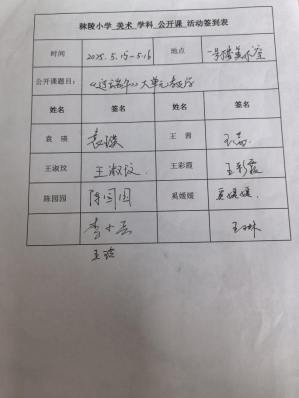 秣陵小学 美术 学科 公开课 活动签到表
时间 2025.5.15-5.16 地点 一号楼美术室
公开课题目： 《过端午》大单元教学
姓名 签名 姓名 签名
袁瑛 袁瑛 王茜 王茜
王淑玟 王淑玟 王彩霞 王彩霞
陈园园 陈园园 奚媛媛 奚媛媛
王琳
王玲